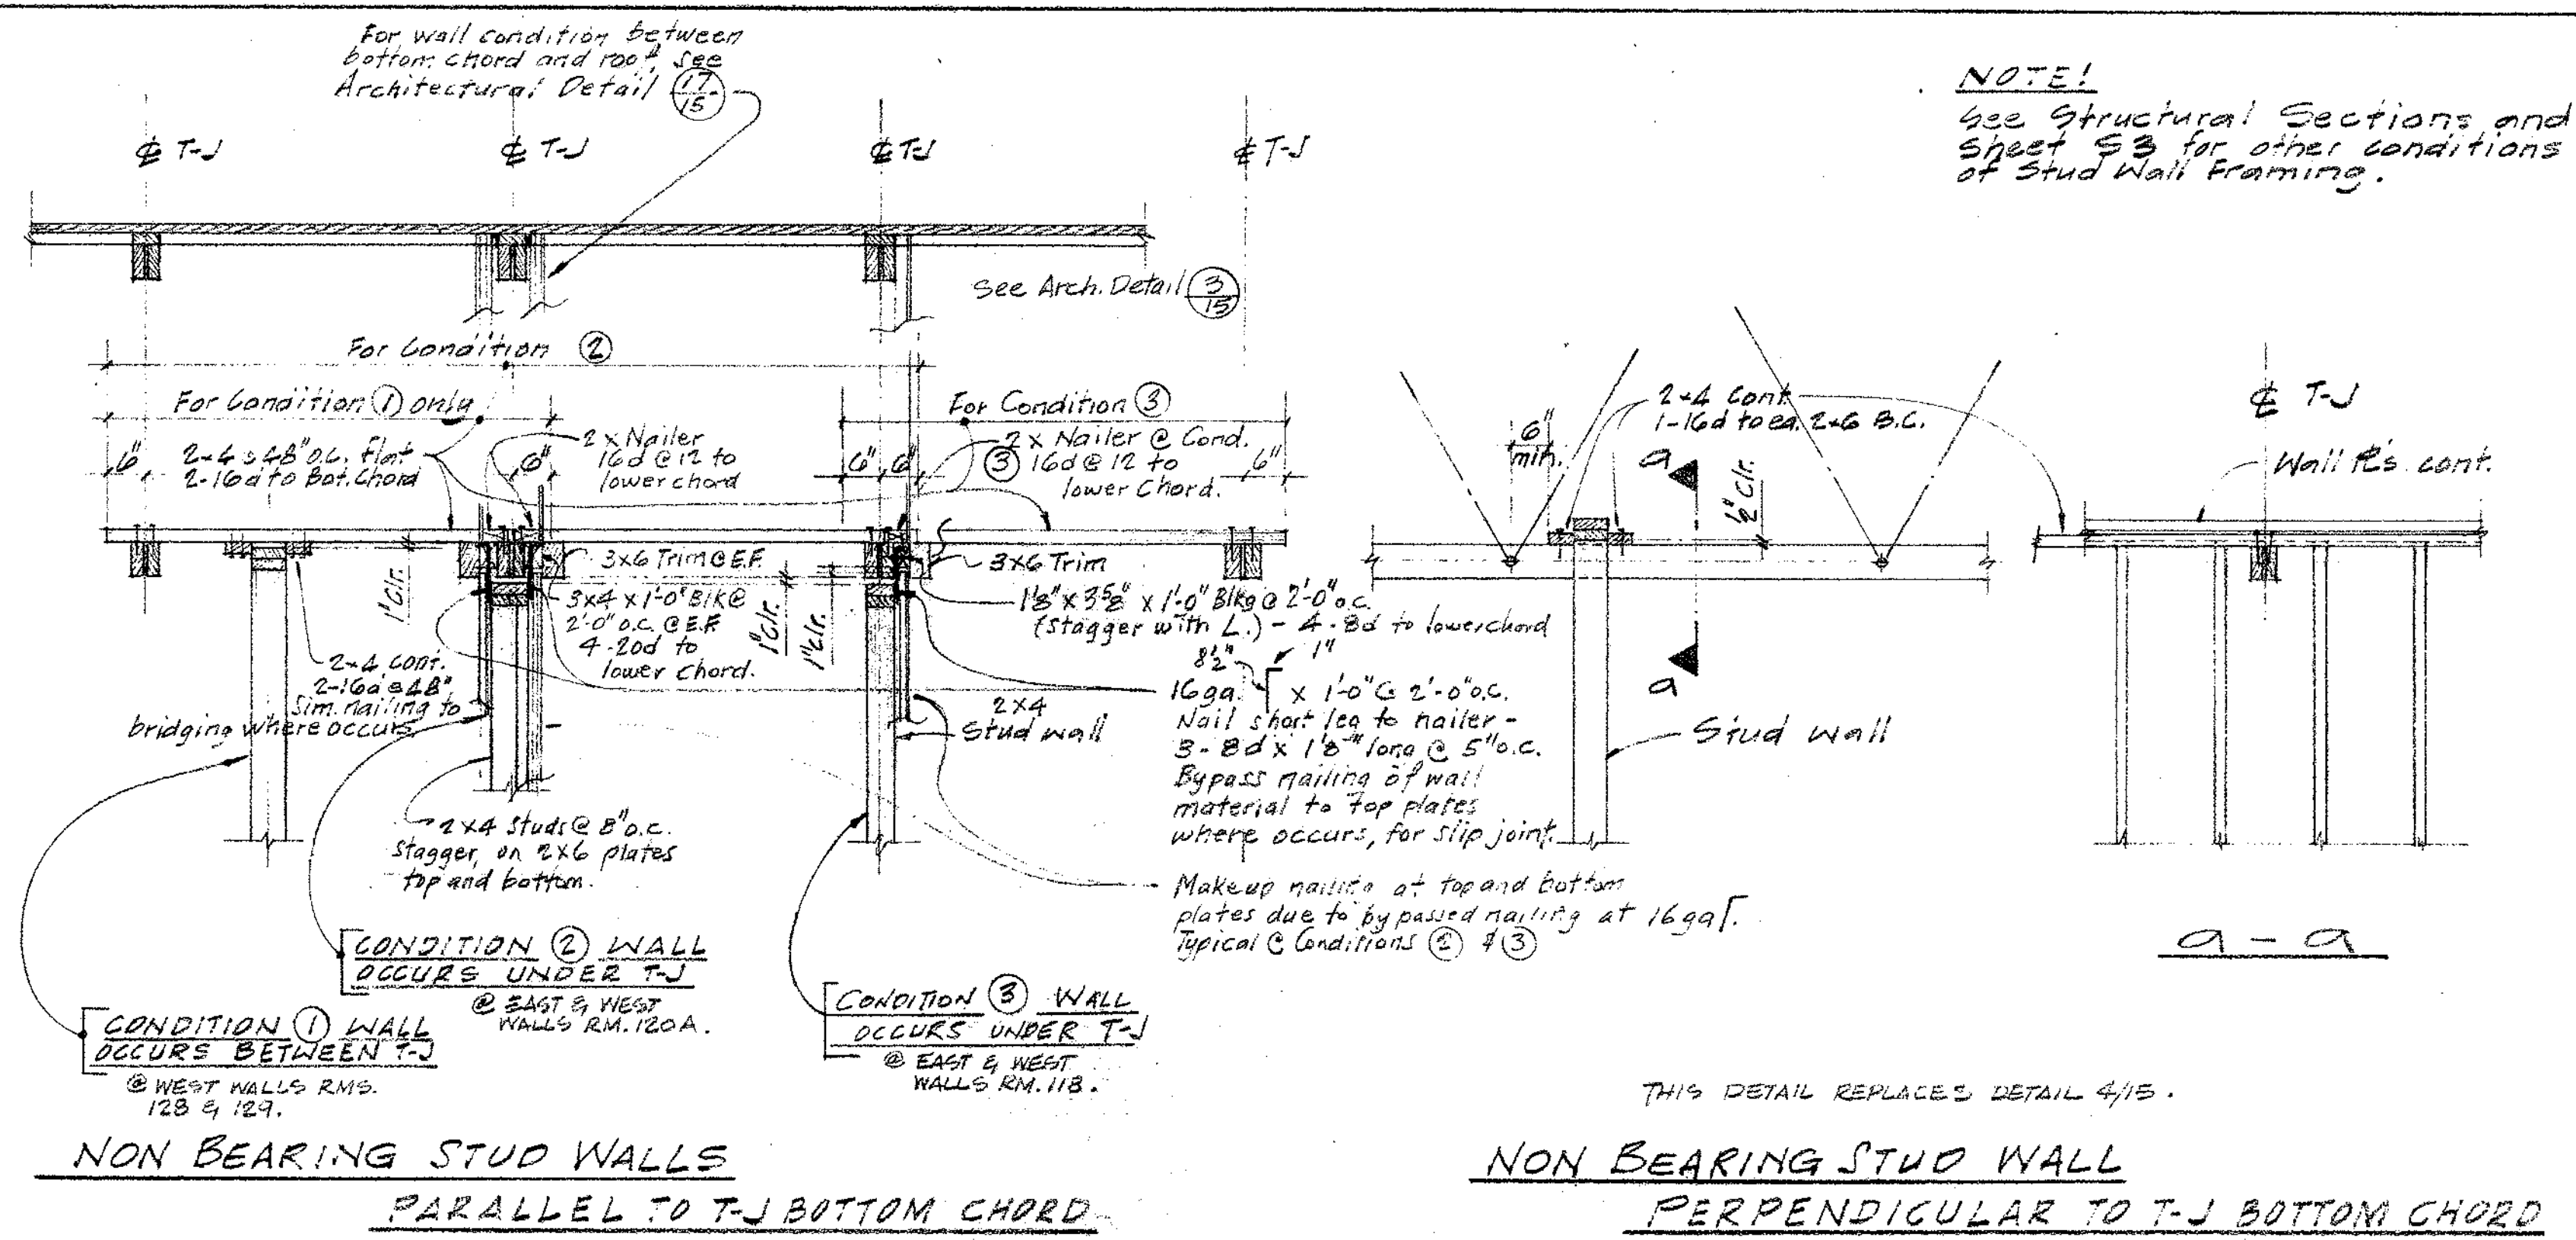 For wall condition between
bottom chord and roof, see
Architectural Detail 17/15
NOTE!
See Structural Sections and
Sheet S3 for other conditions
of Stud Wall Framing.
℄ T-J
℄ T-J
℄ T-J
℄ T-J
See Arch. Detail 3/15
For Condition ②
For Condition ① only
For Condition ③
6"
2x4 s 48" o.c. Flat
2-16d to Bot. Chord
2 x Nailer
16d @ 12 to
lower chord
6"
6"
6"
2 x Nailer @ Cond.
③ 16d @ 12 to
lower chord.
6"
3x6 Trim @ E.F.
3x4 x 1'-0" Blk @
2'-0" o.c. @ E.F.
4-20d to
lower chord.
1" Clr.
1" Clr.
1" Clr.
3x6 Trim
1⅛" x 3⅝" x 1'-0" Blkg @ 2'-0" o.c.
(Stagger with L.) - 4-8d to lower chord
2x4 Cont.
2-16d @ 48"
Sim. nailing to
bridging where occurs
8½" 1"
16 ga. x 1'-0" @ 2'-0" o.c.
Nail short leg to nailer -
3-8d x 1⅛" long @ 5" o.c.
Bypass nailing of wall
material to top plates
where occurs, for slip joint.
2x4
Stud wall
2x4 Studs @ 8" o.c.
Stagger, on 2x6 plates
top and bottom.
Makeup nailing at top and bottom
plates due to bypassed nailing at 16 ga.
Typical @ Conditions ② & ③
CONDITION ① WALL
OCCURS BETWEEN T-J
@ WEST WALLS RMS.
128 & 129.
CONDITION ② WALL
OCCURS UNDER T-J
@ EAST & WEST
WALLS RM. 120A.
CONDITION ③ WALL
OCCURS UNDER T-J
@ EAST & WEST
WALLS RM. 118.
NON BEARING STUD WALLS
PARALLEL TO T-J BOTTOM CHORD
6"
min.
2x4 Cont.
1-16d to ea. 2x6 B.C.
a
½" Clr.
a
Stud wall
℄ T-J
Wall ℞'s cont.
a - a
THIS DETAIL REPLACES DETAIL 4/15.
NON BEARING STUD WALL
PERPENDICULAR TO T-J BOTTOM CHORD